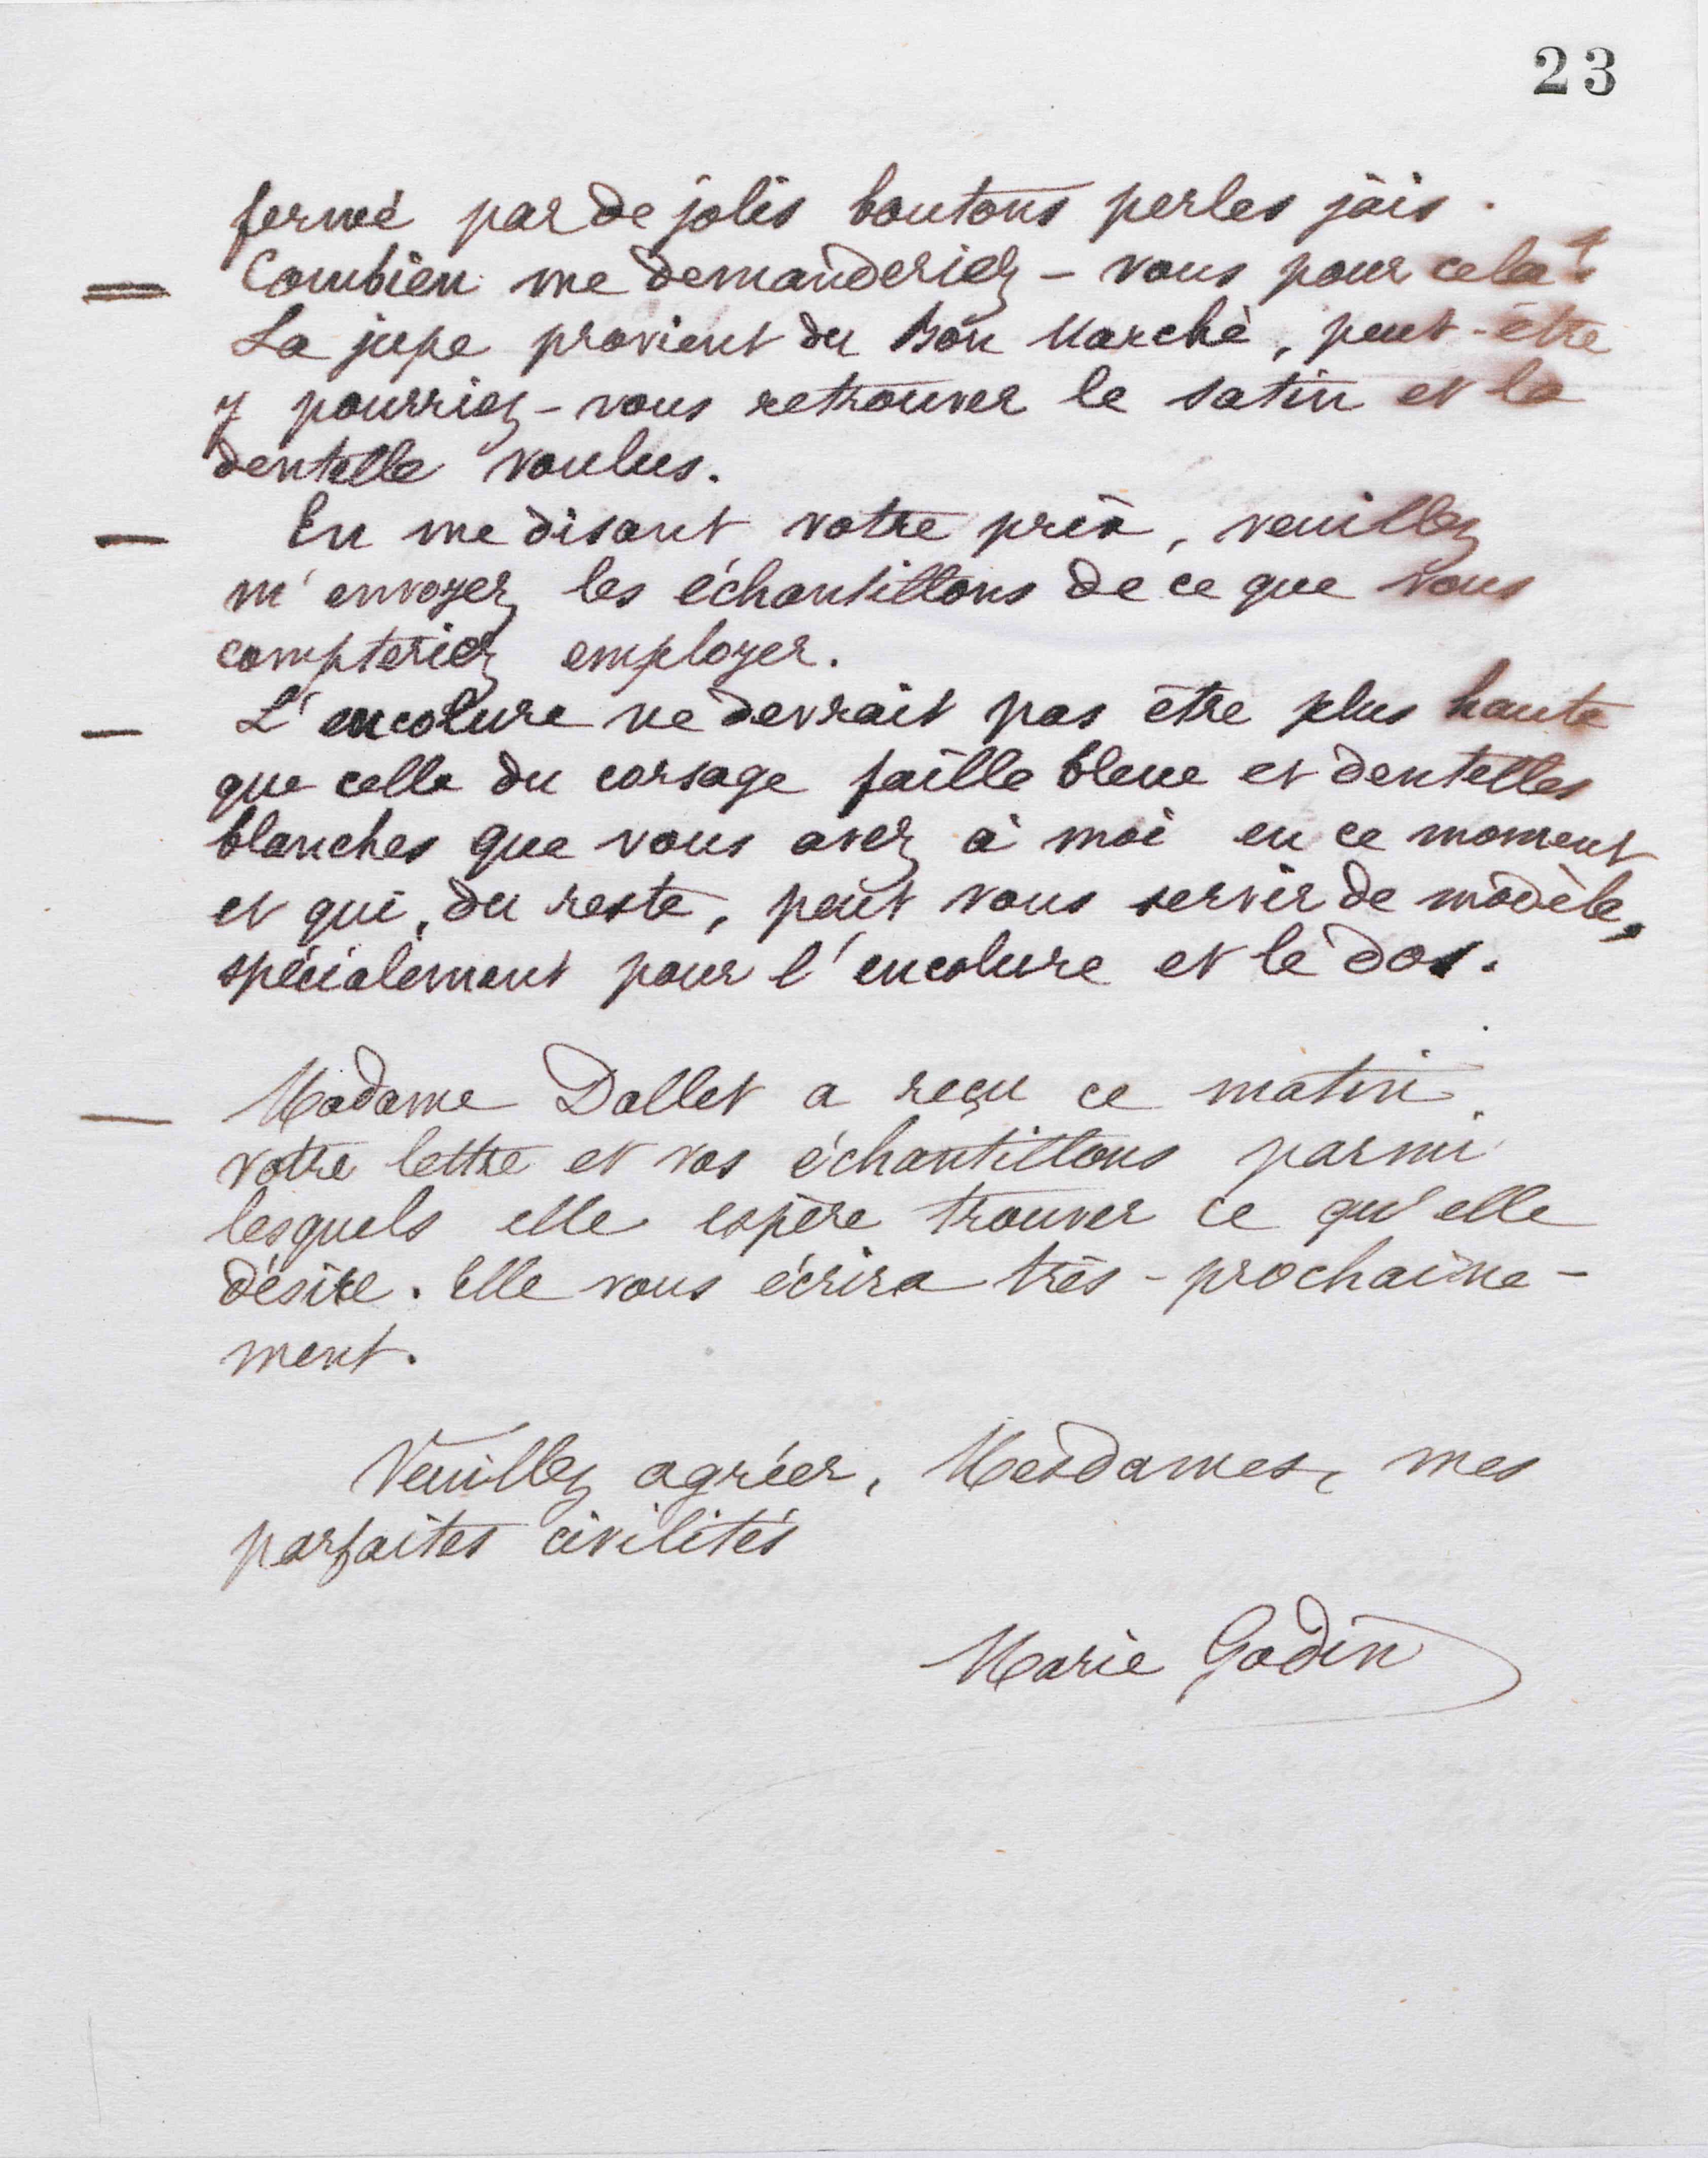 23
fermé par de jolis boutons perles jais.
Combien me demanderiez-vous pour cela ?
La jupe provient du Bon Marché, peut-être
y pourriez-vous retrouver le satin et la
dentelle voulus.
En me disant votre prix, veuillez
m'envoyer les échantillons de ce que vous
compteriez employer.
L'encolure ne devrait pas être plus haute
que celle du corsage faille bleue et dentelles
blanches que vous avez à moi en ce moment
et qui, du reste, peut vous servir de modèle,
spécialement pour l'encolure et le dos.
Madame Dallet a reçu ce matin
votre lettre et vos échantillons parmi
lesquels elle espère trouver ce qu'elle
désire. Elle vous écrira très-prochaine-
ment.
Veuillez agréer, Mesdames, mes
parfaites civilités
Marie Godin